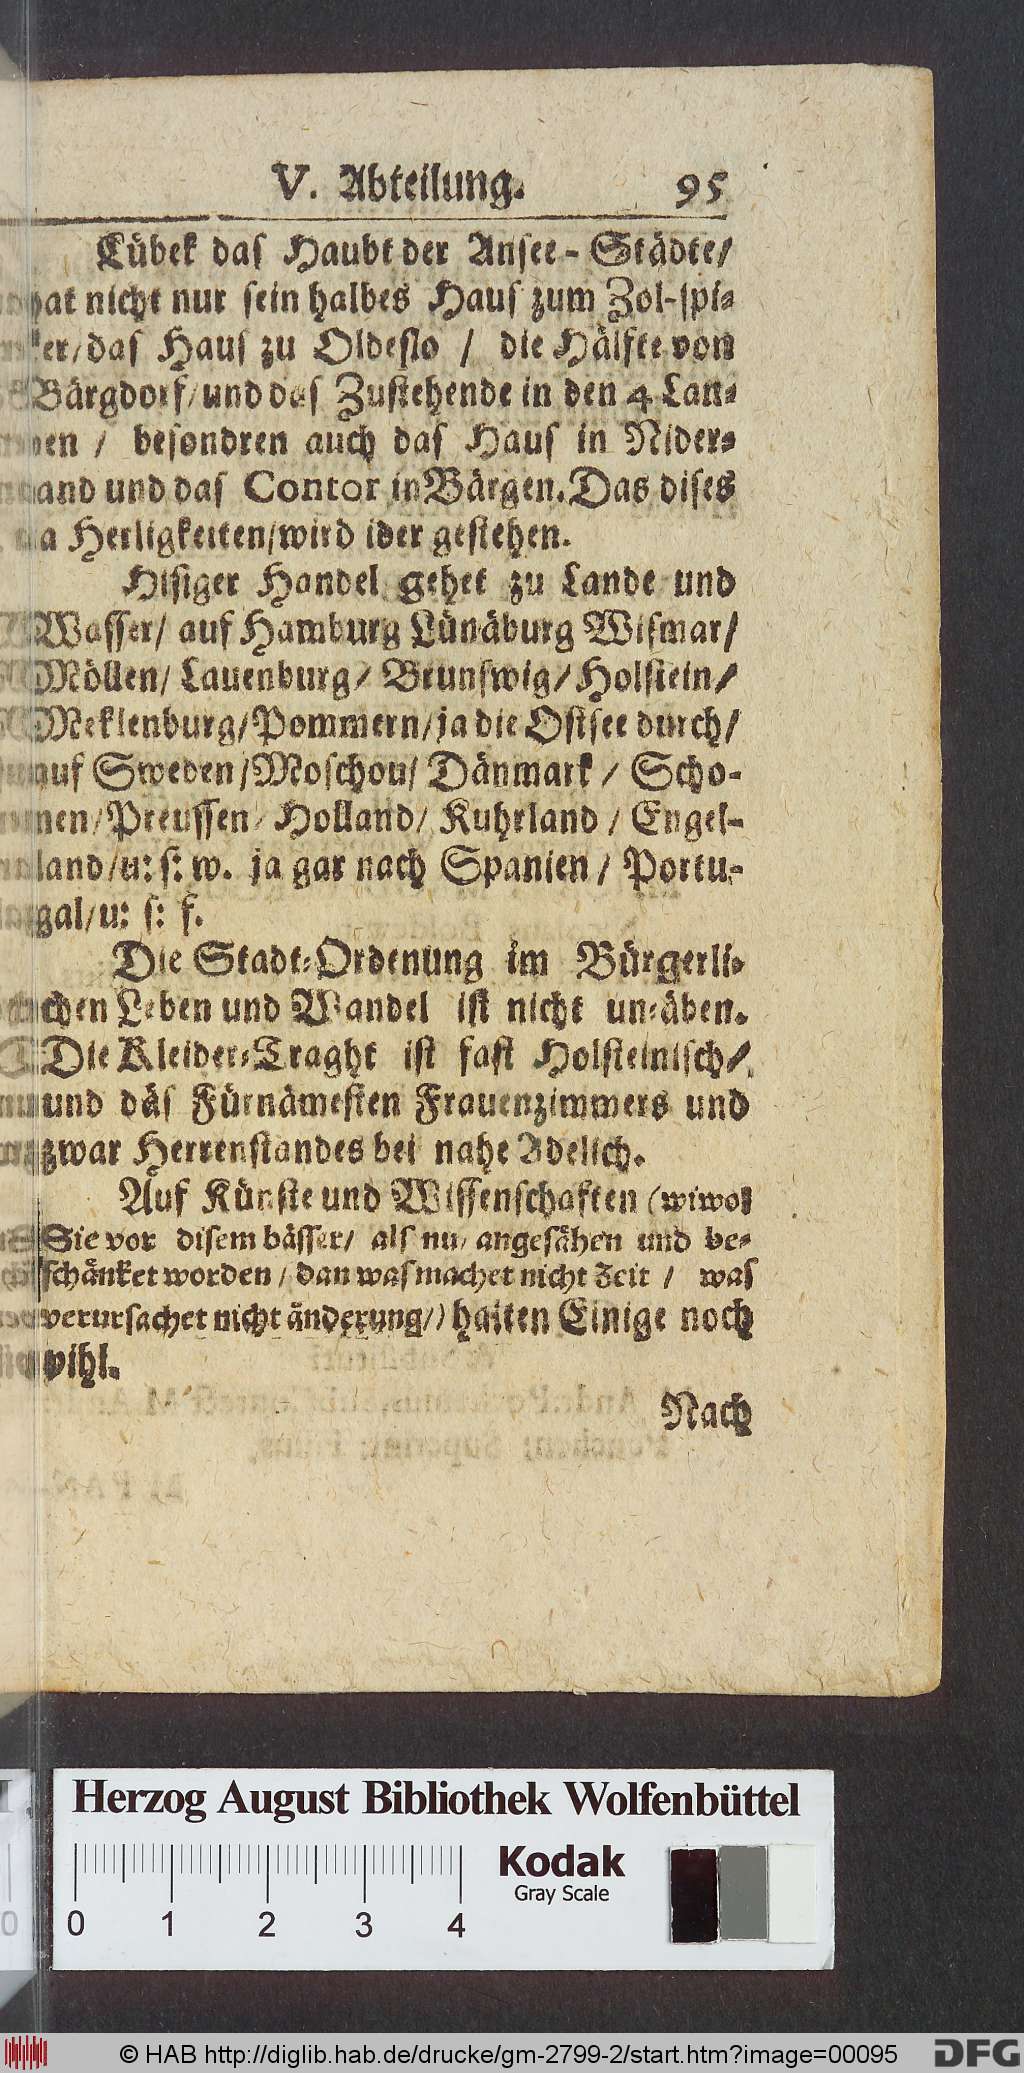 V. Abteilung. 95
Lübek das Haubt der Ansee-Städte/
hat nicht nur sein halbes Haus zum Zol-spi-
ker/das Haus zu Oldeslo / die Hälfte von
Bärgdorf/und das Zustehende in den 4 Lan-
den / besondren auch das Haus in Nider-
land und das Contor in Bärgen. Das dises
ja Herligkeiten/wird ider gestehen.
Hisiger Handel gehet zu Lande und
Wasser/ auf Hamburg Lünäburg Wismar/
Möllen/ Lauenburg/ Brunswig/ Holstein/
Meklenburg/Pommern/ja die Ostsee durch/
auf Sweden/Moschou/ Dänmark / Scho-
nen/Preussen/ Holland/ Kuhrland / Engel-
land/u: s: w. ja gar nach Spanien / Portu-
gal/u: s: f.
Die Stadt-Ordenung im Bürgerli-
chen Leben und Wandel ist nicht un-äben.
Die Kleider-Traght ist fast Holsteinisch/
und däs Fürnämesten Frauenzimmers und
zwar Herrenstandes bei nahe Adelich.
Auf Künste und Wissenschaften (wiwol
Sie vor disem bässer/ als nu/ angesähen und be-
schänket worden/ dan was machet nicht Zeit / was
verursachet nicht änderung/) halten Einige noch
vihl.
Nach
Herzog August Bibliothek Wolfenbüttel
Kodak
Gray Scale
0 1 2 3 4
© HAB http://diglib.hab.de/drucke/gm-2799-2/start.htm?image=00095
DFG